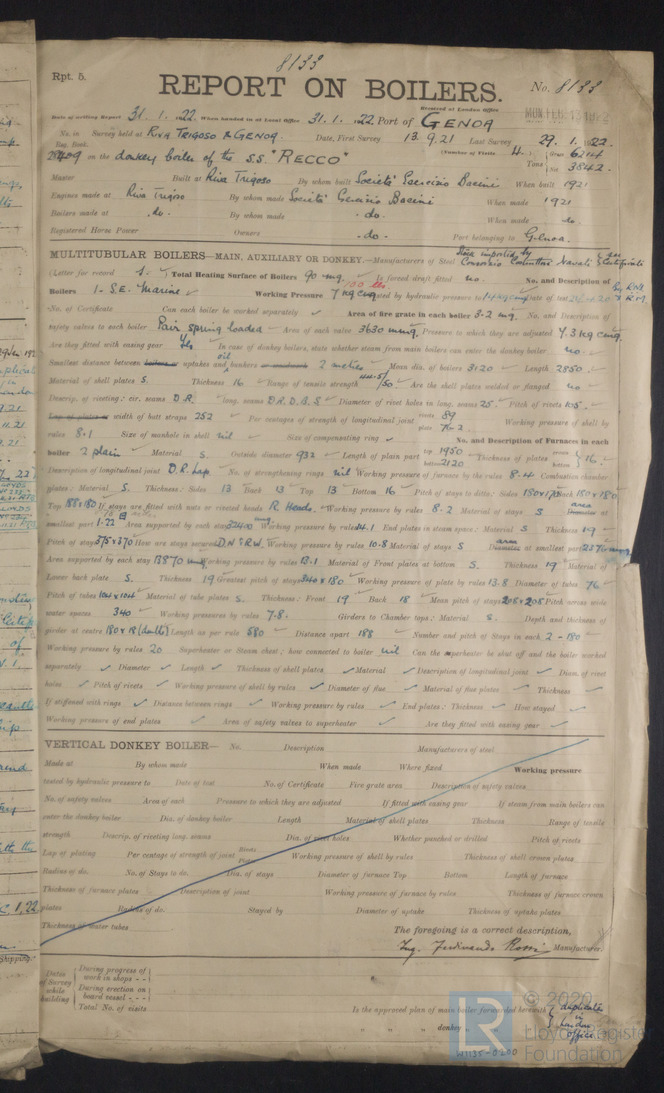 8133
Rpt. 5.
REPORT ON BOILERS.
No. 8133
Received at London Office
Date of writing Report 31. 1. 22. When handed in at Local Office 31. 1. 22 Port of GENOA
No. in Reg. Book. Survey held at RIVA TRIGOSO & GENOA. Date, First Survey 13.9.21 Last Survey 29.1.1922.
on the donkey boiler of the S.S. "RECCO" (Number of Visits 4.) Tons Gross 6244 Net 3842.
Master Built at Riva Trigoso By whom built When built 1921
Engines made at Riva Trigoso By whom made When made 1921
Boilers made at do. By whom made do. When made do.
Registered Horse Power Owners do. Port belonging to Genoa.
MULTITUBULAR BOILERS—MAIN, AUXILIARY OR DONKEY.—Manufacturers of Steel
(Letter for record S.) Total Heating Surface of Boilers 90 mq. Is forced draft fitted no. No. and Description of
Boilers 1- S.E. Marine Working Pressure 7 kg cmq Tested by hydraulic pressure to 14 kg cmq Date of test
No. of Certificate Can each boiler be worked separately Area of fire grate in each boiler 3.2 mq. No. and Description of
safety valves to each boiler Pair spring loaded Area of each valve 3630 mmq. Pressure to which they are adjusted 7.3 kg cmq.
Are they fitted with easing gear yes In case of donkey boilers, state whether steam from main boilers can enter the donkey boiler no
Smallest distance between boilers or uptakes and oil bunkers or woodwork 2 metres Mean dia. of boilers 3120 Length 2850
Material of shell plates S. Thickness 16 Range of tensile strength 44.5/50 Are the shell plates welded or flanged no
Descrip. of riveting: cir. seams D.R. long. seams D.R.D.B.S Diameter of rivet holes in long. seams 25 Pitch of rivets 105.
Lap of plates or width of butt straps 252 Per centages of strength of longitudinal joint rivets 89 plate 76.2 Working pressure of shell by
rules 8.1 Size of manhole in shell nil Size of compensating ring No. and Description of Furnaces in each
boiler 2 plain Material S. Outside diameter 932 Length of plain part top 1950 bottom 2120 Thickness of plates crown bottom 16.
Description of longitudinal joint D.R. lap No. of strengthening rings nil Working pressure of furnace by the rules 8.4 Combustion chamber
plates: Material S. Thickness: Sides 13 Back 13 Top 13 Bottom 16 Pitch of stays to ditto: Sides 180x175 Back 180x180
Top If stays are fitted with nuts or riveted heads R. Heads. Working pressure by rules 8.2 Material of stays S area Diameter at
smallest part Area supported by each stay 32400 Working pressure by rules 14.1 End plates in steam space: Material S Thickness 19
Pitch of stays 375x370 How are stays secured D.N & R.W. Working pressure by rules 10.8 Material of stays S area Diameter at smallest part
Area supported by each stay 138750 Working pressure by rules 13.1 Material of Front plates at bottom S. Thickness 19 Material of
Lower back plate S. Thickness 19 Greatest pitch of stays 340x180 Working pressure of plate by rules 13.8 Diameter of tubes 76
Pitch of tubes 104x104 Material of tube plates S. Thickness: Front 19 Back 18 Mean pitch of stays 208x208 Pitch across wide
water spaces 340 Working pressures by rules 7.8. Girders to Chamber tops: Material S. Depth and thickness of
girder at centre 180x18 (double) Length as per rule 580 Distance apart 188 Number and pitch of Stays in each 2 - 180
Working pressure by rules 20 Superheater or Steam chest; how connected to boiler nil Can the superheater be shut off and the boiler worked
separately Diameter Length Thickness of shell plates Material Description of longitudinal joint Diam. of rivet
holes Pitch of rivets Working pressure of shell by rules Diameter of flue Material of flue plates Thickness
If stiffened with rings Distance between rings Working pressure by rules End plates: Thickness How stayed
Working pressure of end plates Area of safety valves to superheater Are they fitted with easing gear
VERTICAL DONKEY BOILER— No. Description Manufacturers of steel
Made at By whom made When made Where fixed Working pressure
tested by hydraulic pressure to Date of test No. of Certificate Fire grate area Description of safety valves
No. of safety valves Area of each Pressure to which they are adjusted If fitted with easing gear If steam from main boilers can
enter the donkey boiler Dia. of donkey boiler Length Material of shell plates Thickness Range of tensile
strength Descrip. of riveting long. seams Dia. of rivet holes Whether punched or drilled Pitch of rivets
Lap of plating Per centage of strength of joint Rivets Plates Working pressure of shell by rules Thickness of shell crown plates
Radius of do. No. of Stays to do. Dia. of stays Diameter of furnace Top Bottom Length of furnace
Thickness of furnace plates Description of joint Working pressure of furnace by rules Thickness of furnace crown
plates Radius of do. Stayed by Diameter of uptake Thickness of uptake plates
Thickness of water tubes
The foregoing is a correct description,
Ing. Ferdinando Rossi Manufacturer.
Dates of Survey while building
During progress of work in shops - -
During erection on board vessel - - -
Total No. of visits
Is the approved plan of main boiler forwarded herewith duplicate in London office
" " " donkey "
© 2020
LR
Lloyd's Register
Foundation
W1135-0200